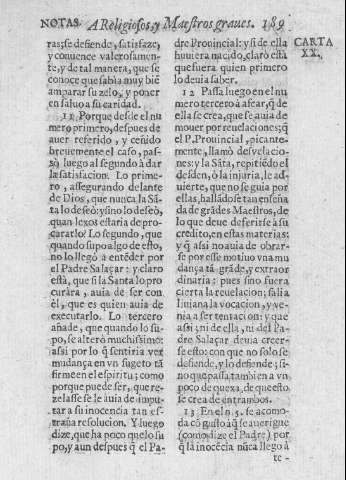 NOTAS. A Religiosos, y Maestros graues. 189
CARTA
XX.
ras; se defiende, satisfaze,
y conuence valerosamen-
te, y de tal manera, que se
conoce que sabia muy biẽ
amparar su zelo, y poner
en saluo a su caridad.
11 Porque desde el nu
mero primero, despues de
auer referido, y ceñido
breuemente el caso, pas-
sò luego al segundo à dar
la satisfacion. Lo prime-
ro, assegurando delante
de Dios, que nunca la Sã
ta lo deseò: y sino lo deseò,
quan lexos estaria de pro-
curarlo! Lo segundo, que
quando supo algo de esto,
no lo llegó a entẽder por
el Padre Salaçar: y claro
està, que si la Santa lo pro
curàra, auia de ser con
èl, que es quien auia de
executarlo. Lo tercero
añade, que quando lo su-
po, se alterò muchissimo:
assi por lo q̃ sentiria ver
mudança en vn sugeto tã
firme en el espiritu; como
porque puede ser, que re-
zelasse se le auia de impu-
tar a su inocencia tan es-
traña resolucion. Y luego
dize, que ha poco que lo su
po, y aun despues q̃ el Pa-
dre Prouincial: y si de ella
huuiera nacido, claro està
que fuera quien primero
lo deuia saber.
12 Passa luego en el nu
mero tercero à afear, q̃ de
ella se crea, que se auia de
mouer por reuelaciones; q̃
el P. Prouincial, picante-
mente, llamò desvelacio-
nes: y la Sãta, repitiẽdo el
desdẽn, ò la injuria, le ad-
uierte, que no se guia por
ellas, hallãdose tan enseña
da de grãdes Maestros, de
lo que deue deferirse a su
credito, en estas materias:
y q̃ assi no auia de obrar-
se por esse motiuo vna mu
dança tã grãde, y extraor
dinaria: pues sino fuera
cierta la reuelacion; salia
liuiana la vocacion, y ve-
nia a ser tentacion: y que
assi; ni de ella, ni del Pa-
dre Salaçar deuia creer-
se esto: con que no solo se
defiende, y lo defiende; si-
no que passa, tambien a vn
poco de quexa, de que esto
se crea de entrambos.
13 En el n. 5. se acomo-
da cõ gusto a q̃ se auerigue
(como dize el Padre) por
q̃ la inocẽcia nũca llegò à
te-